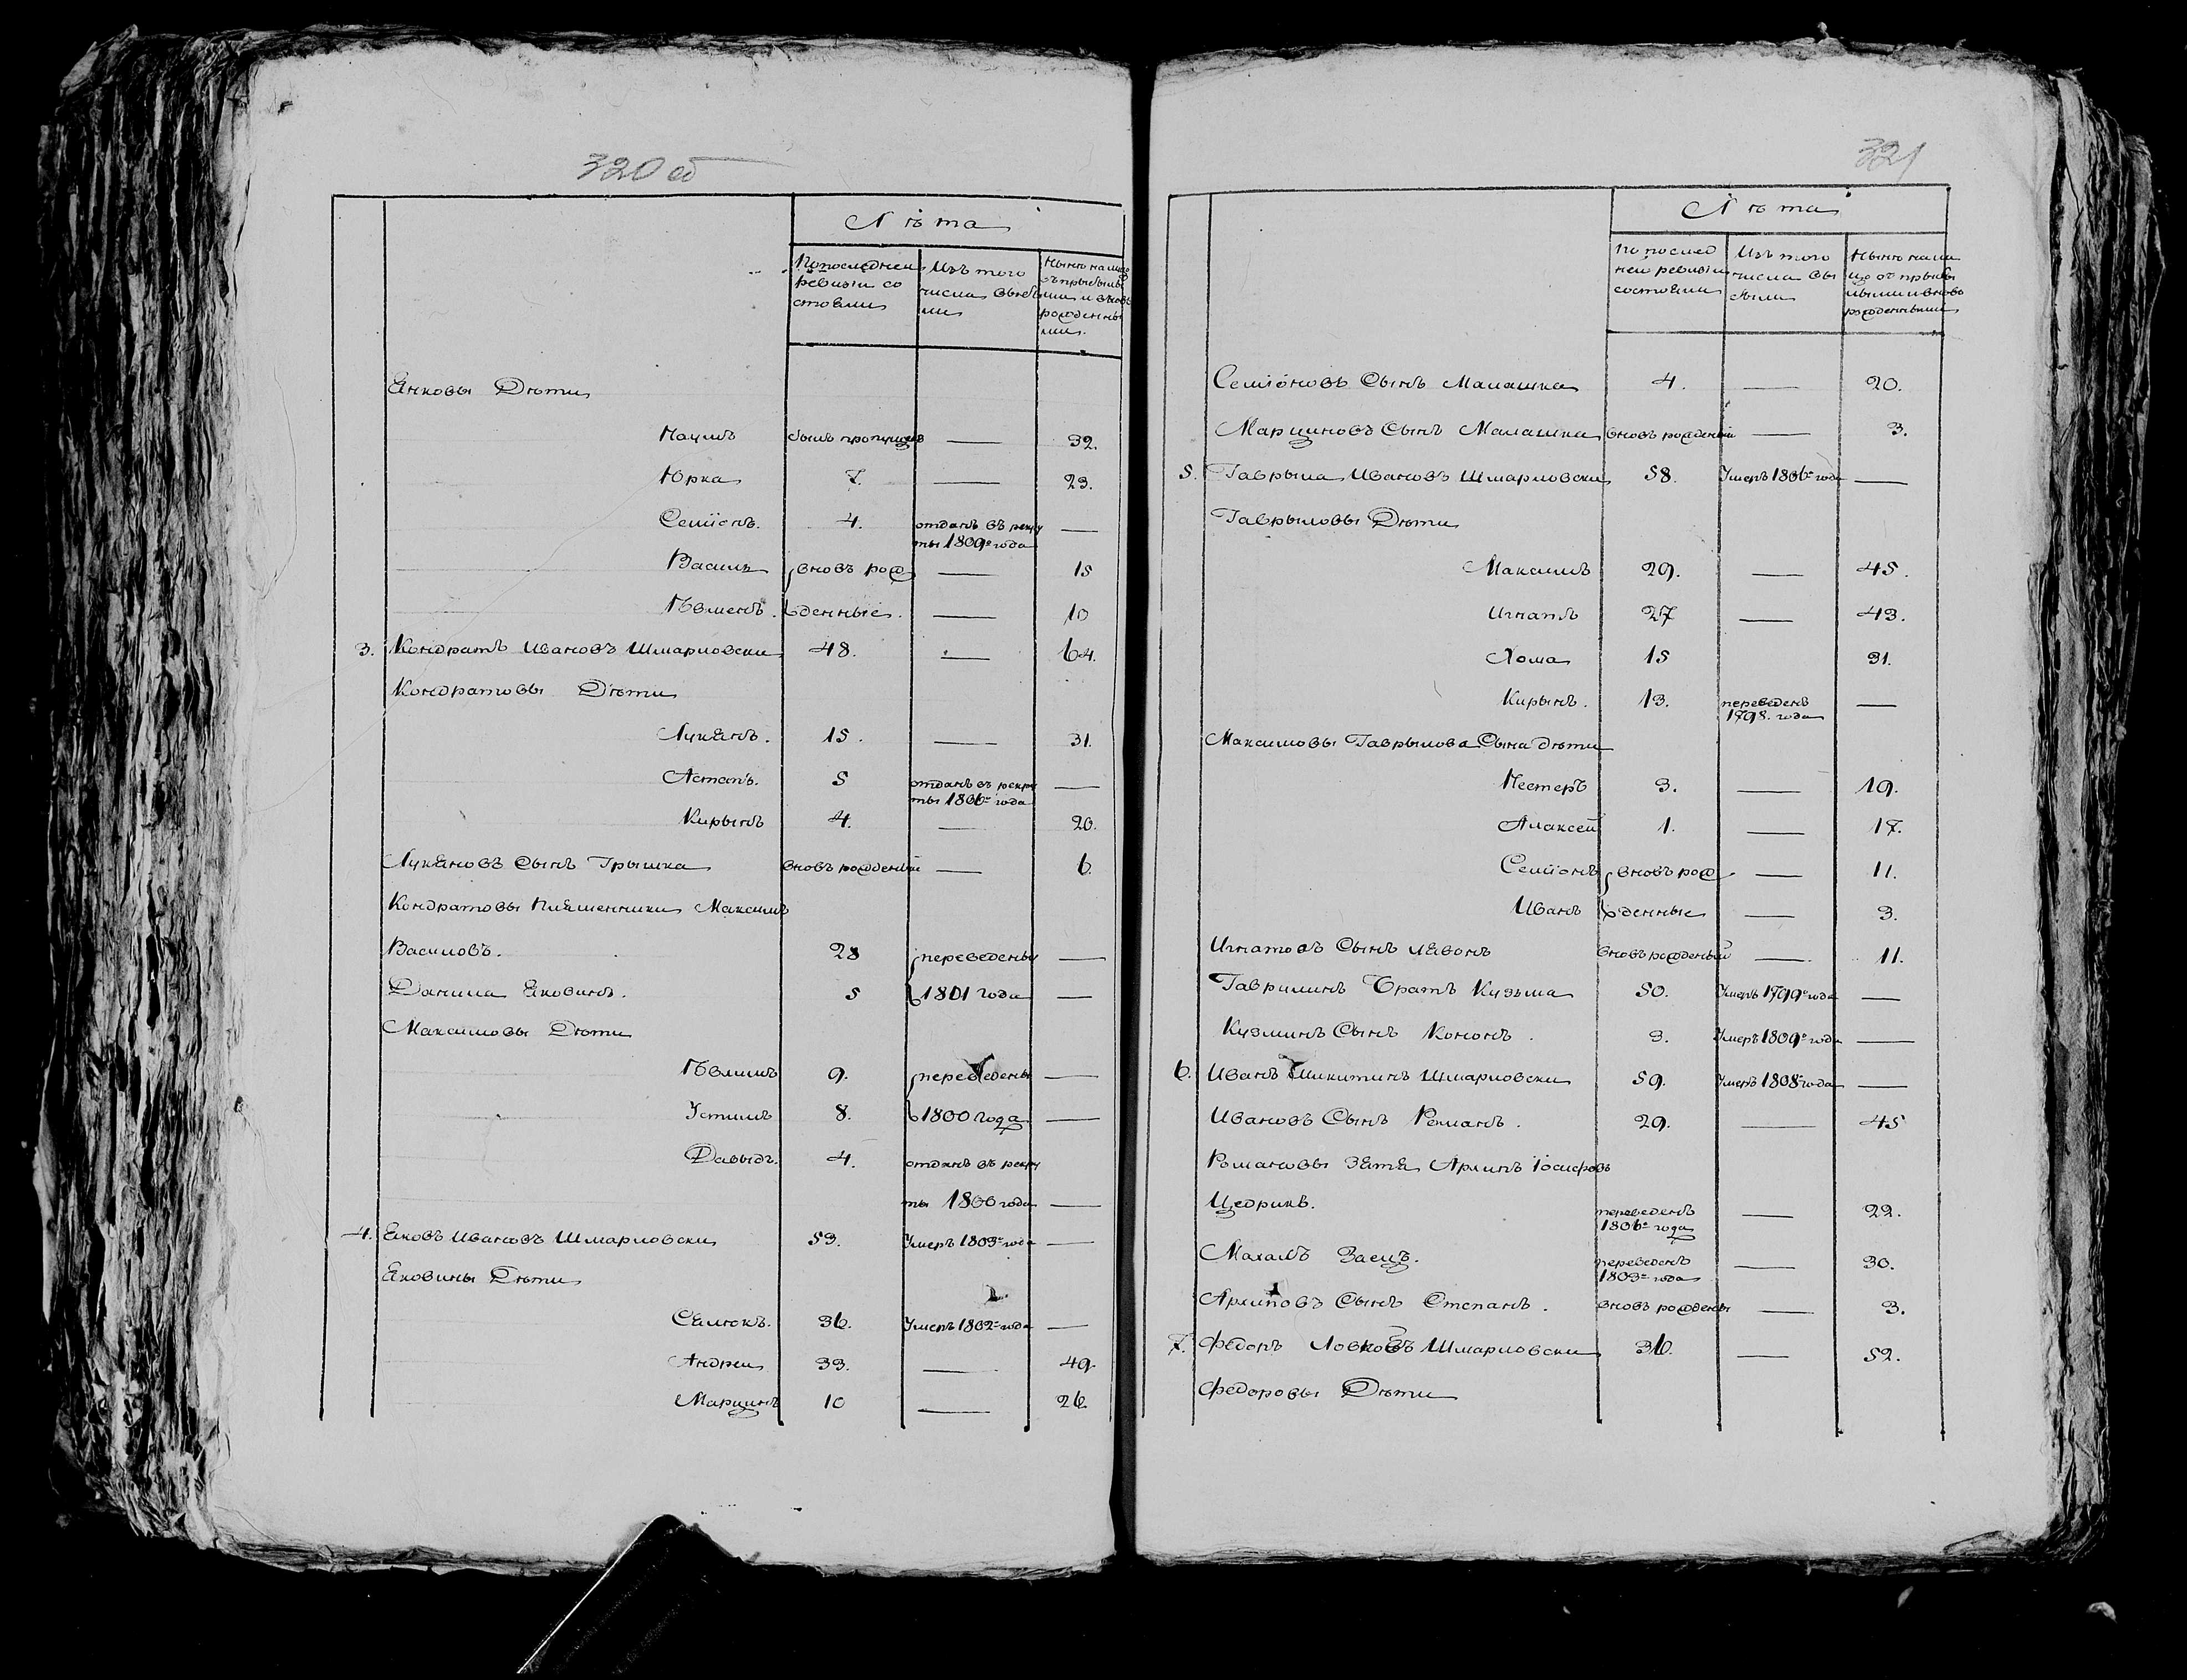 320 об
Лѣта
По последнеи ревизіи состояли
Изъ того числа выбыли
Ныне на лицо съ прыбылыми и вновь рожденными.
Янковы Дѣти
Наумъ былъ пропущенъ — 32.
Юрка 7. — 23.
Семіонъ. 4. отданъ въ рекру —
ты 1809го года
Василь вновь рож — 15
Павленъ. денные. — 10
3. Кондратъ Ивановъ Шмарловски 48. — 64.
Кондратовы Дѣти
Лукянъ. 15. — 31.
Астапъ. 5 отданъ въ рекру —
ты 1806го года
Кирылъ 4. — 20.
Лукяновъ Сынъ Грышка вновь рожденый — 6.
Кондратовы племенники Максимъ
Васильовъ. 28 переведены —
Данила Яковинъ. 5 1801 года —
Максимовы Дѣти
9. переведены —
Устимъ 8. 1800 года —
Давыдъ. 4. отданъ въ рекру
ты 1800 года —
4. Яковъ Ивановъ Шмарловски 53. Умеръ 1803го года —
Яковины Дѣти
36. Умеръ 1802го года —
Андреи 33. — 49.
Марцинъ 10 — 26
321
Лѣта
По послед ней ревизіи состояли
Изъ того числа вы были
Ныне на ли цо съ прыбы лыми и вновь рожденными
Семіоновъ Сынъ Малашка 4. — 20.
Марциновъ Сынъ Малашка вновь рожденый — 3.
5. Гаврыла Ивановъ Шмарловски 58. Умеръ 1806го года —
Гаврыловы Дѣти
Максимъ 29. — 45.
Игнатъ 27 — 43.
Хома 15 31.
Кирылъ. 13. переведенъ —
1798. года
Максимовы Гаврылова Сына дѣти
Нестеръ 3. — 19.
Алаксей 1. — 17.
Семіонъ вновь рож — 11.
Иванъ денные — 3.
Игнатовъ Сынъ Лявонъ вновь рожденый — 11.
Гаврилинъ Братъ Кузьма 50. Умеръ 1799го года —
Кузминъ Сынъ Кононъ. 3. Умеръ 1809го года —
6. Иванъ Микитинъ Шмарловски 59. Умеръ 1808го года —
Ивановъ Сынъ Романъ. 29. — 45
Романовы Зятя Архипъ Іосифовъ
Щедрикъ. переведенъ 1806го года — 22.
Заецъ. переведенъ 1803го года — 30.
Архиповъ Сынъ Степанъ. вновь рожденый — 3.
7. Федоръ Шмарловски 36. — 52.
Федоровы Дѣти